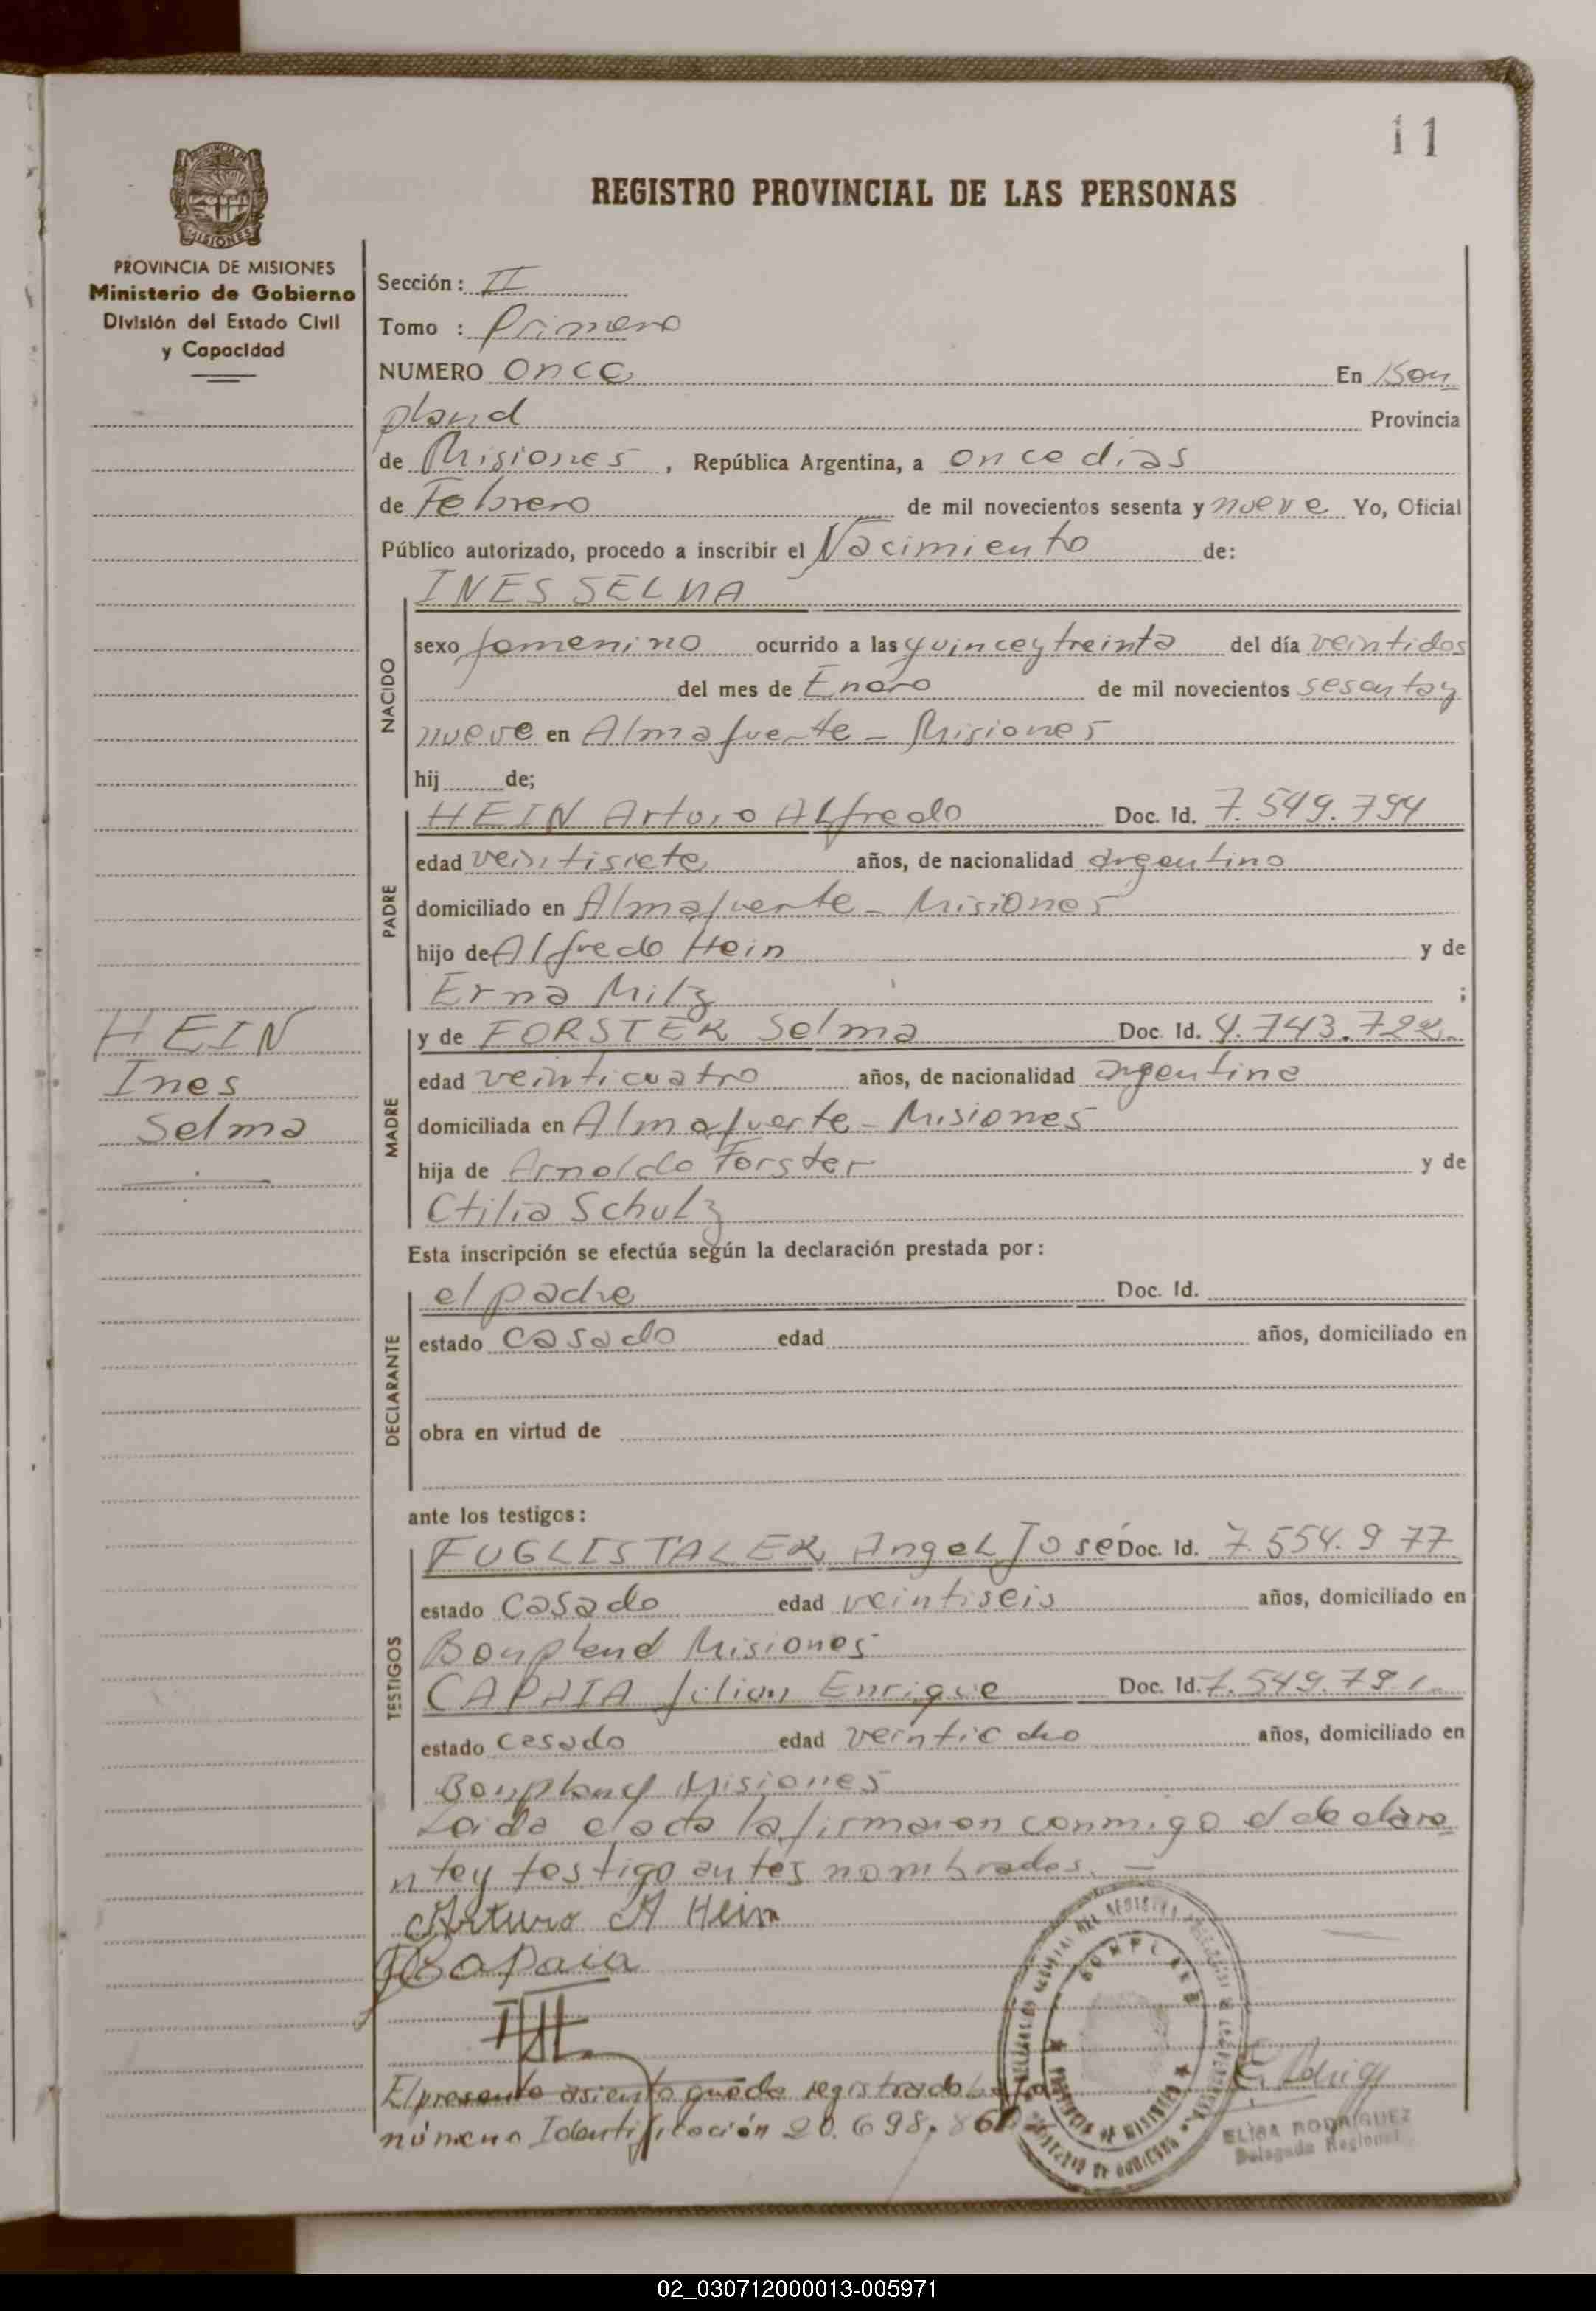 11
REGISTRO PROVINCIAL DE LAS PERSONAS
PROVINCIA DE MISIONES
MISIONES
PROVINCIA DE MISIONES
Ministerio de Gobierno
División del Estado Civil
y Capacidad
Sección: II
Tomo : Primero
NUMERO Once En Bon
pland Provincia
de Misiones, República Argentina, a once dias
de Febrero de mil novecientos sesenta y nueve Yo, Oficial
Público autorizado, procedo a inscribir el Nacimiento de:
NACIDO
INES SELMA
sexo femenino ocurrido a las quince y treinta del día veintidos
del mes de Enero de mil novecientos sesenta y
nueve en Almafuerte - Misiones
hij de;
PADRE
HEIN Arturo Alfredo Doc. Id. 7.549.794
edad veintisiete años, de nacionalidad argentino
domiciliado en Almafuerte - Misiones
hijo de Alfredo Hein y de
Erna Milz ;
HEIN
Ines
Selma
MADRE
y de FORSTER Selma Doc. Id. 4.743.722.
edad veinticuatro años, de nacionalidad argentina
domiciliada en Almafuerte - Misiones
hija de Arnoldo Forster y de
Ctilia Schulz
Esta inscripción se efectúa según la declaración prestada por:
DECLARANTE
el padre Doc. Id.
estado casado edad años, domiciliado en
obra en virtud de
ante los testigos:
TESTIGOS
FUGLISTALER Angel José Doc. Id. 7.554.977
estado casado edad veintiseis años, domiciliado en
Bonpland Misiones
CAPAIA Julian Enrique Doc. Id. 7.549.791.
estado casado edad veintiocho años, domiciliado en
Bonpland Misiones
Leida el acta la firmaron conmigo el declara
nte y testigo antes nombrados. —
Arturo A Hein
Capaia
El presente asiento queda registrado bajo
número Identificación 20.698.860
BONPLAND
PROVINCIA DE MISIONES
ELISA RODRIGUEZ
Delegada Regional
02_030712000013-005971